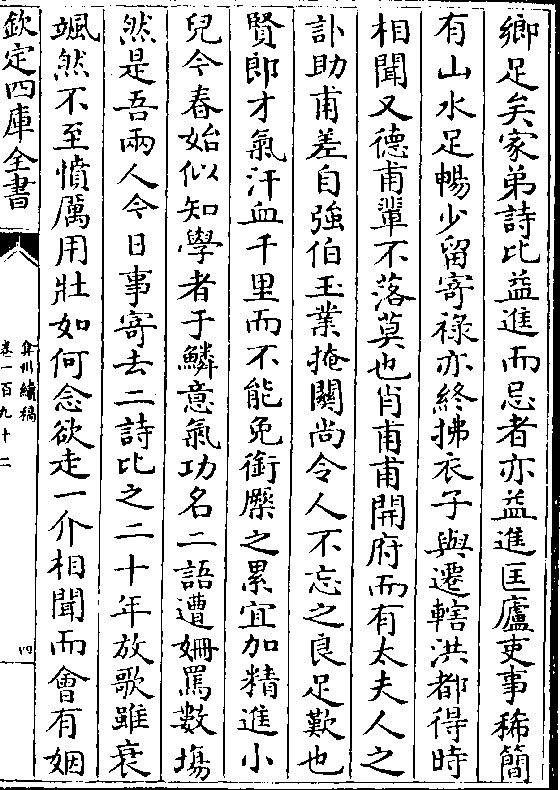 鄉足矣家弟詩比益進而忌者亦益進匡廬吏事稀簡
有山水足暢少留寄祿亦終拂衣子與遷轄洪都得時
相聞又德甫輩不落莫也肖甫甫開府而有太夫人之
訃助甫差自強伯玉業掩關尚令人不忘之良足歎也
賢郎才氣汗血千里而不能免銜橜之累宜加精進小
兒今春始似知學者于鱗意氣功名二語遭姍罵數塲
然是吾兩人今日事寄去二詩比之二十年放歌雖衰
颯然不至憤厲用壯如何念欲走一介相聞而會有姻
欽定四庫全書
弇州續稿
卷一百九十二
四